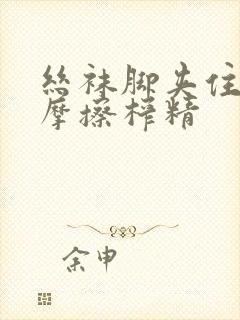 丝袜脚夹住
摩擦榨精
余申